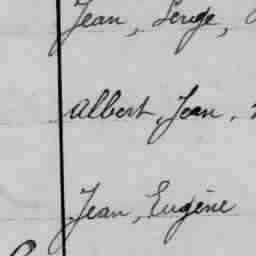 Jean, Serge,
Albert, Jean,
Jean, Eugène